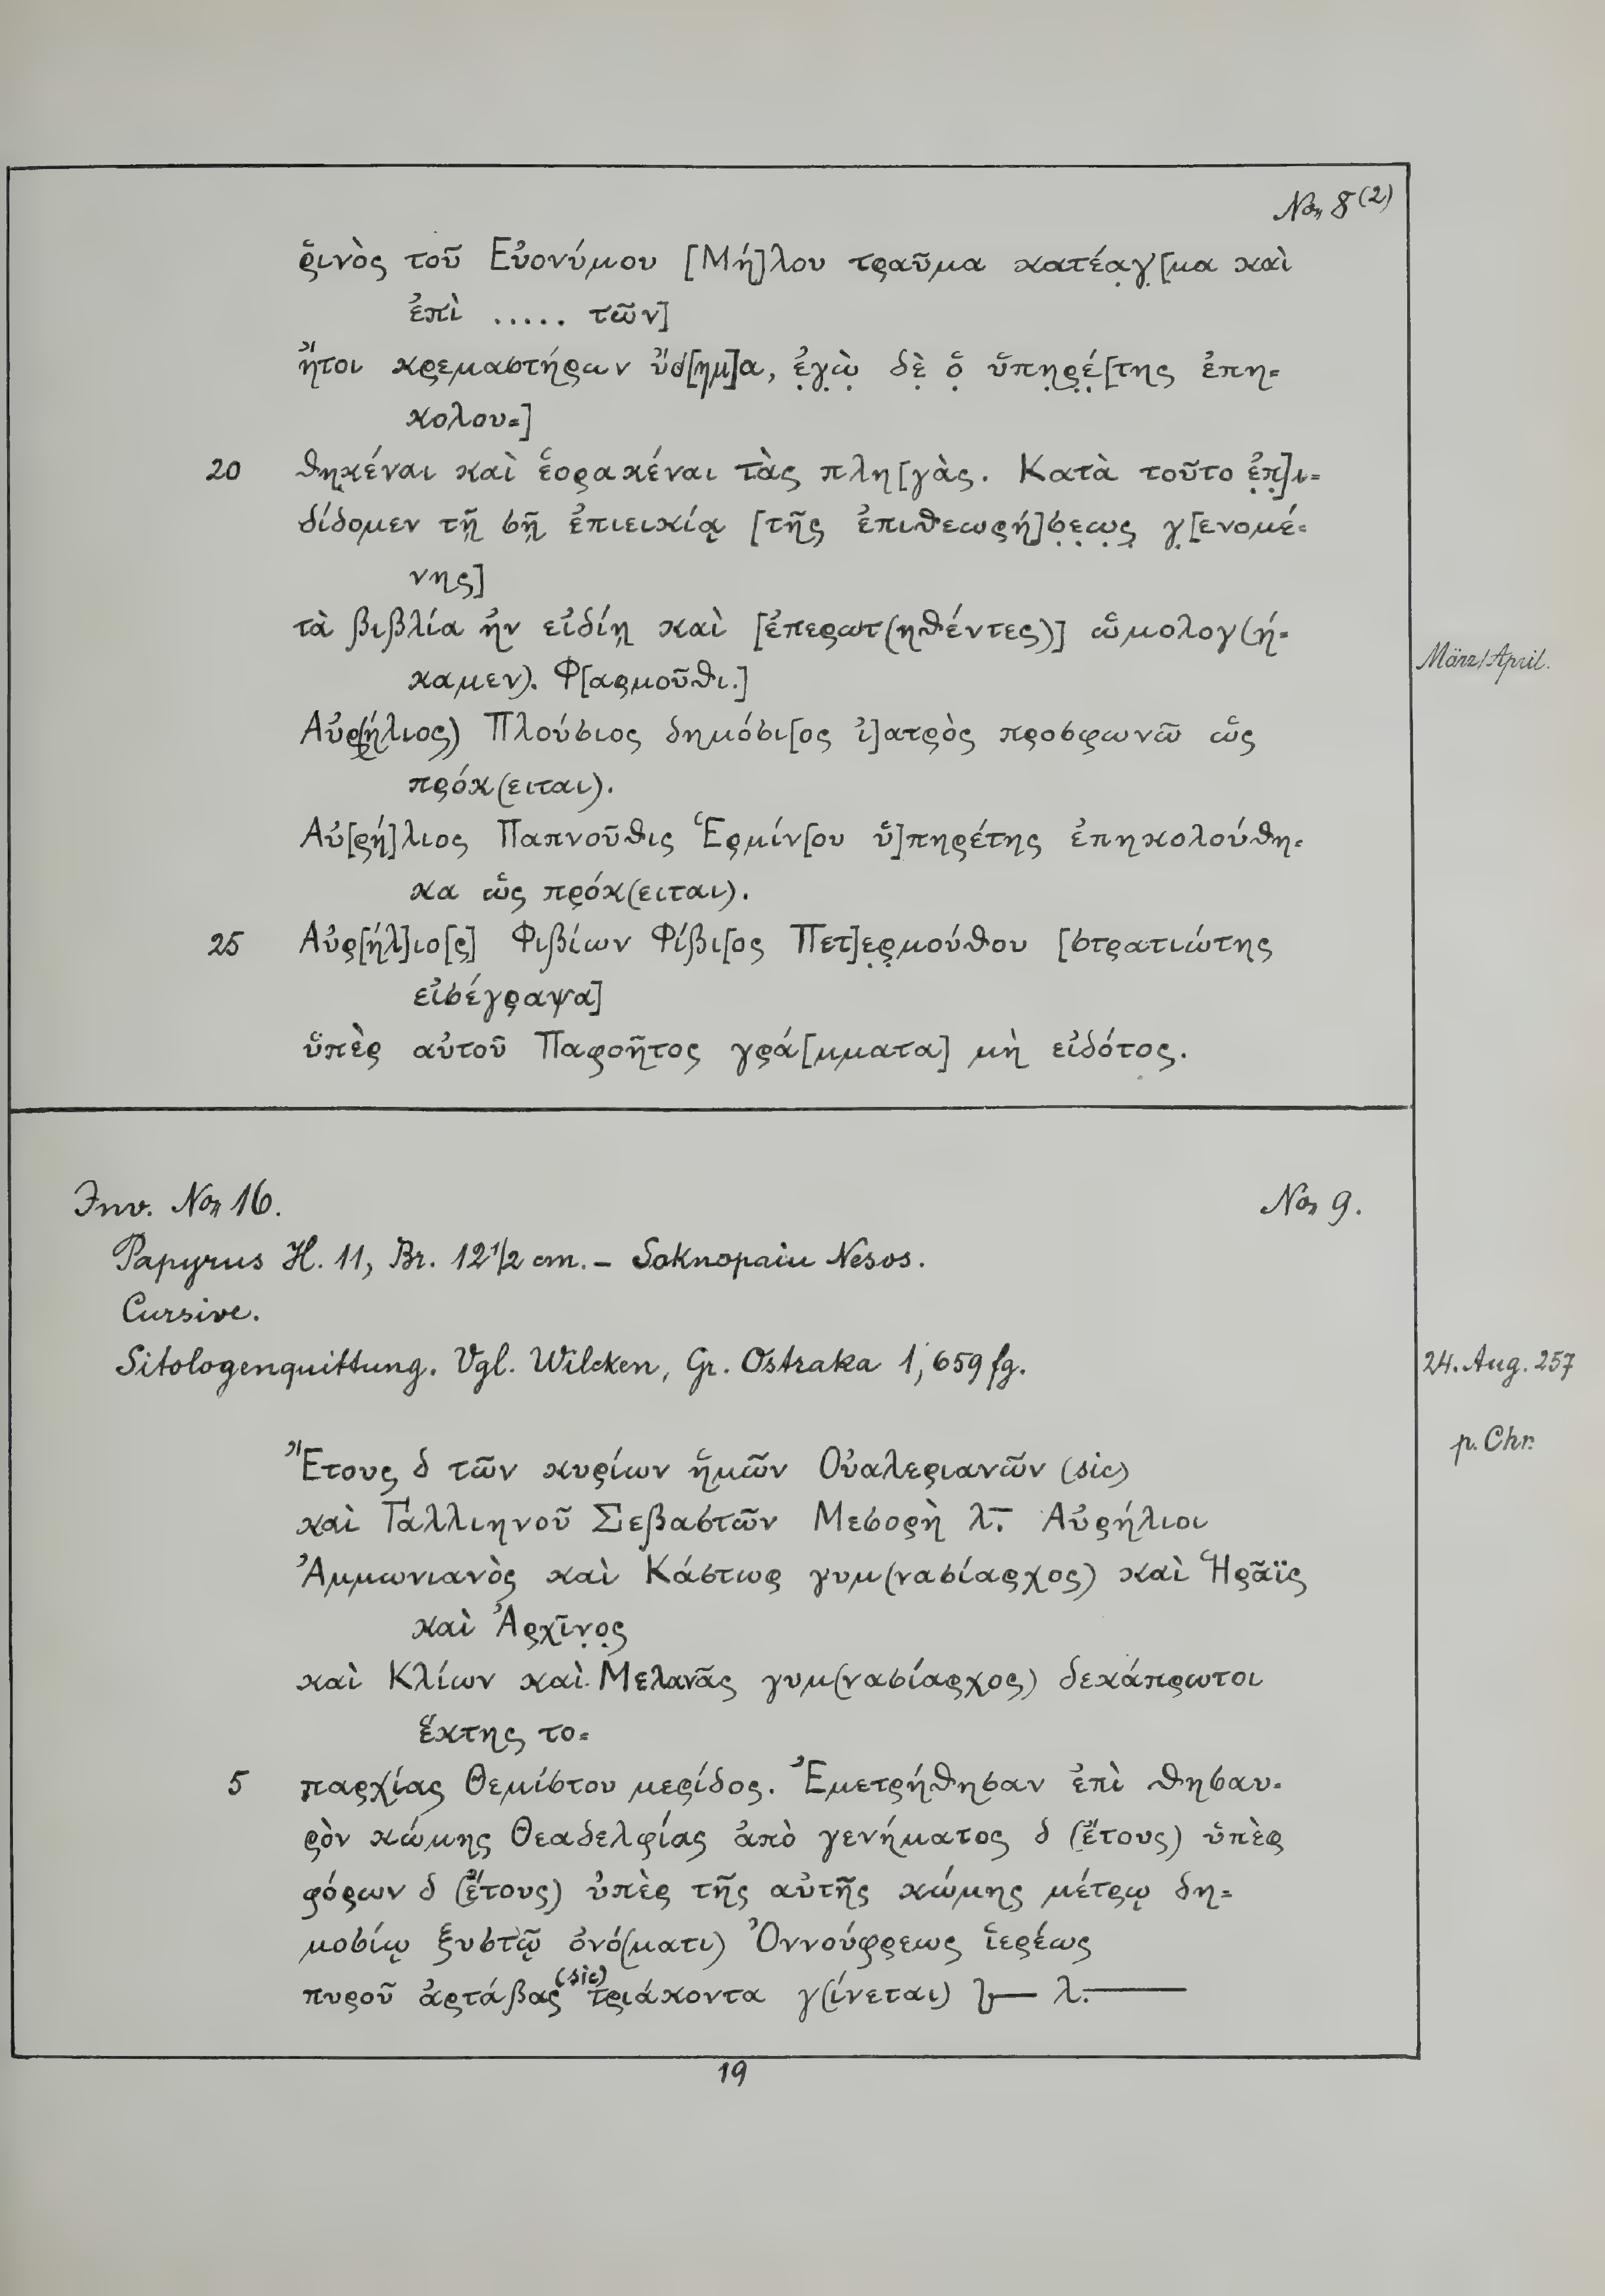 No. 8 (2)
ῥινὸς τοῦ Εὐονύμου [Μή]λου τραῦμα κατέα̣γ̣[μα καὶ
ἐπὶ ..... τῶν]
ἤτοι κρεμαστήρων ὔδ[ημ]α, ἐ̣γ̣ὼ̣ δὲ̣ ὁ̣ ὑπη̣ρ̣έ̣[της ἐπη-
κολου-]
20 θηκέναι καὶ ἑορακέναι τὰς πλη[γὰς. Κατὰ τοῦτο ἐ̣π̣]ι-
δίδομεν τῇ σῇ ἐπιεικίᾳ [τῆς ἐπιθεωρή]σ̣ε̣ω̣ς̣ γ̣[ενομέ-
νης]
τὰ βιβλία ἠν εἰδίῃ καὶ [ἐπερωτ(ηθέντες)] ὡμολογ(ή-
καμεν). Φ[αρμοῦθι.]
März/April.
Αὐρ(ήλιος) Πλούσιος δημόσι[ος ἰ]ατρὸς προσφωνῶ ὡς
πρόκ(ειται).
Αὐ[ρή]λιος Παπνοῦθις Ἑρμίν[ου ὑ]πηρέτης ἐπηκολούθη-
κα ὡς πρόκ(ειται).
25 Αὐρ[ήλ]ιο[ς] Φιβίων Φίβι[ος Πετ]ε̣ρ̣μούθου [στρατιώτης
εἰσέγραψα]
ὑπὲρ αὐτοῦ Παφοῆτος γρά[μματα] μὴ εἰδότος.
Inv. No. 16.
No. 9.
Papyrus H. 11, Br. 12 1/2 cm. – Soknopaiu Nesos.
Cursive.
Sitologenquittung. Vgl. Wilcken, Gr. Ostraka 1, 659 fg.
24. Aug. 257
p. Chr.
Ἔτους δ τῶν κυρίων ἡμῶν Οὐαλεριανῶν (sic)
καὶ Γαλλιηνοῦ Σεβαστῶν Μεσορὴ λ̅. Αὐρήλιοι
Ἀμμωνιανὸς καὶ Κάστωρ γυμ(νασίαρχος) καὶ Ἡρᾶϊς
καὶ Ἀρχῖν̣ο̣ς
καὶ Κλίων καὶ Μελανᾶς γυμ(νασίαρχος) δεκάπρωτοι
ἕκτης το-
5 παρχίας Θεμίστου μερίδος. Ἐμετρήθησαν ἐπὶ θησαυ-
ρὸν κώμης Θεαδελφίας ἀπὸ γενήματος δ (ἔτους) ὑπὲρ
φόρων δ (ἔτους) ὑπὲρ τῆς αὐτῆς κώμης μέτρῳ δη-
μοσίῳ ξυστῷ ὀνό(ματι) Ὀννούφρεως ἱερέως
πυροῦ ἀρτάβας (sic) τριάκοντα γ(ίνεται) λ.
19